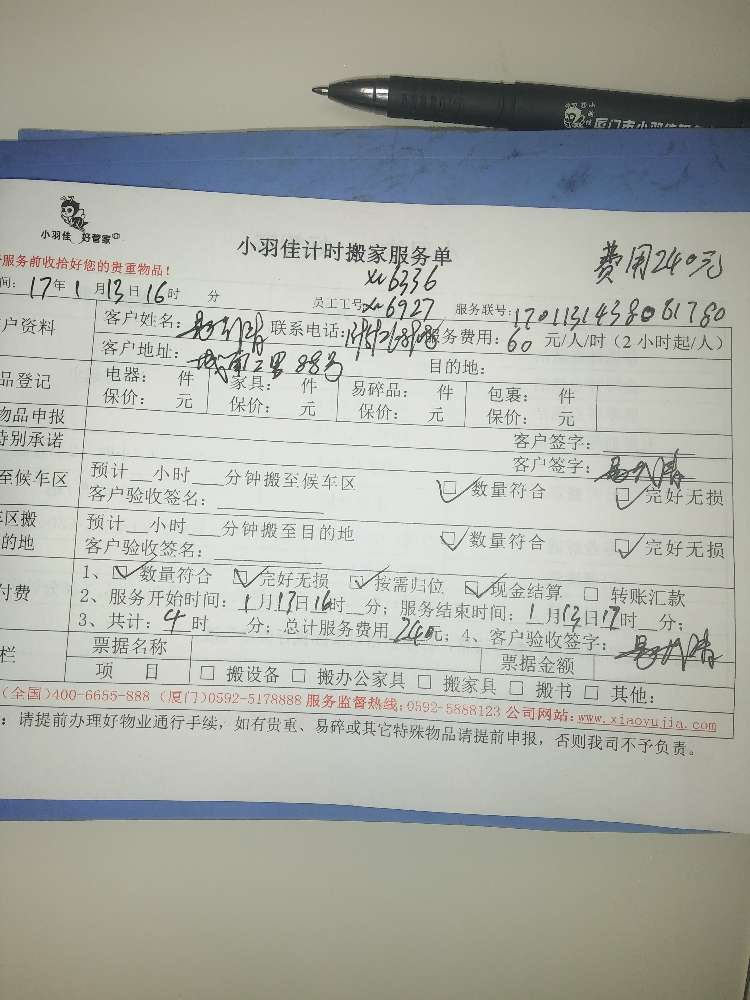 厦门市小羽佳
小羽佳 好管家
小羽佳计时搬家服务单
费用240元
服务前收拾好您的贵重物品!
xm6336
间: 17年1月13日16时 分 员工工号: xm6927 服务联号: 1701131438081780
户资料 客户姓名: 联系电话: 服务费用: 60 元/人/时(2小时起/人)
客户地址: 城南二里88号 目的地:
品登记 电器: 件 家具: 件 易碎品: 件 包裹: 件
保价: 元 保价: 元 保价: 元 保价: 元
物品申报 客户签字:
特别承诺 客户签字:
至候车区 预计__小时___分钟搬至候车区 ☑数量符合 ☑完好无损
客户验收签名:
车区搬 预计__小时___分钟搬至目的地 ☑数量符合 ☑完好无损
的地 客户验收签名:
付费 1、☑数量符合 ☑完好无损 ☑按需归位 ☑现金结算 □转账汇款
2、服务开始时间: 1月13日16时__分; 服务结束时间: 1月13日17时__分;
3、共计: 4时___分; 总计服务费用240元; 4、客户验收签字:
栏 票据名称 票据金额
项 目 □搬设备 □搬办公家具 □搬家具 □搬书 □其他:
(全国)400-6655-888 (厦门)0592-5178888 服务监督热线:0592-5888123 公司网站: www.xiaoyujia.com
: 请提前办理好物业通行手续,如有贵重、易碎或其它特殊物品请提前申报,否则我司不予负责。